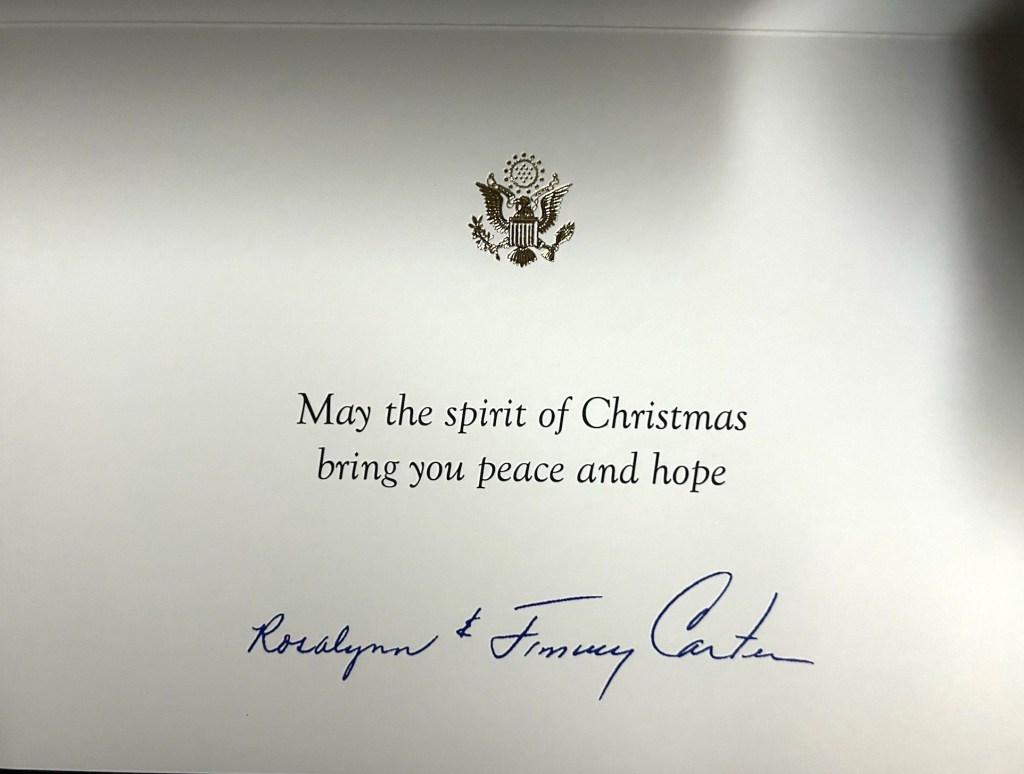 May the spirit of Christmas
bring you peace and hope
Rosalynn & Jimmy Carter